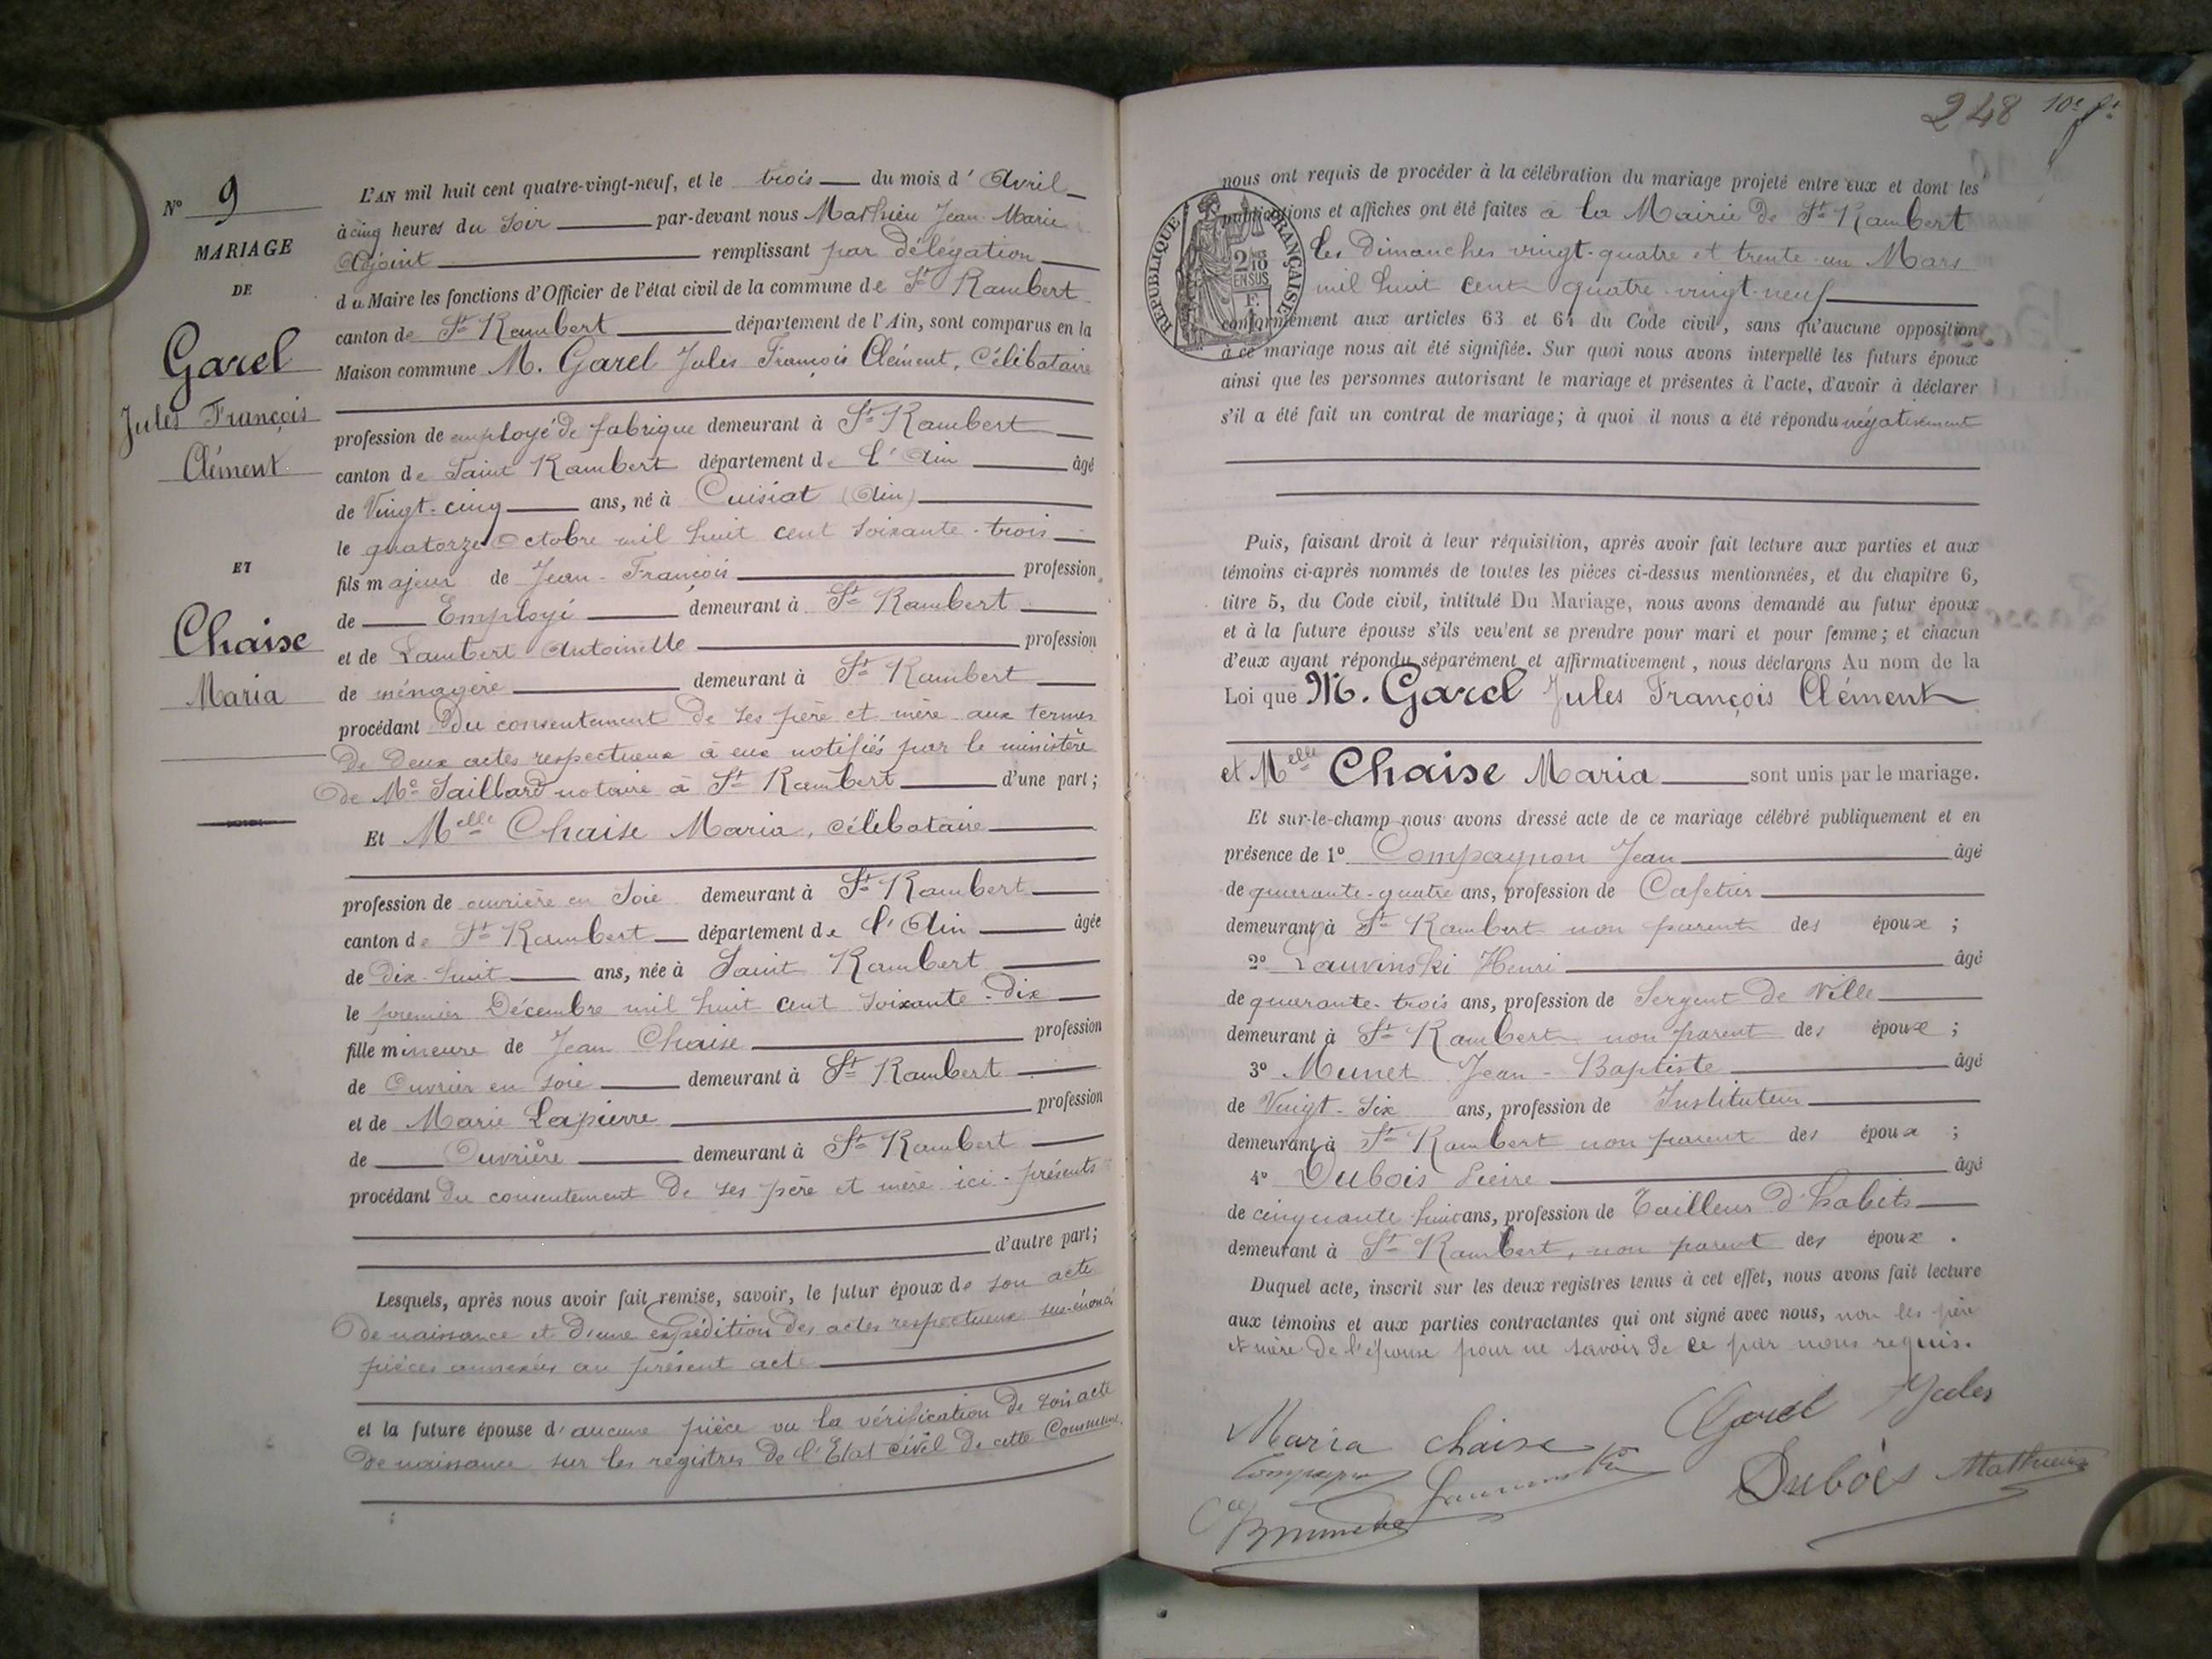 N° 9
MARIAGE
DE
Garel
Jules François
Clément
ET
Chaise
Maria
L'AN mil huit cent quatre-vingt-neuf, et le trois du mois d'Avril
à cinq heures du soir par-devant nous Mathieu Jean Marie
Adjoint remplissant par délégation
du Maire les fonctions d'Officier de l'état civil de la commune de St Rambert
canton de St Rambert département de l'Ain, sont comparus en la
Maison commune M. Garel Jules François Clément, Célibataire
profession de employé de fabrique demeurant à St Rambert
canton de Saint Rambert département de l'Ain âgé
de Vingt-cinq ans, né à Cuisiat (Ain)
le quatorze Octobre mil huit cent soixante-trois
fils majeur de Jean-François profession
de Employé demeurant à St Rambert
et de Lambert Antoinette profession
de ménagère demeurant à St Rambert
procédant du consentement de ses père et mère aux termes
de deux actes respectueux à eux notifiés par le ministère
de Me Saillard notaire à St Rambert d'une part;
Et Melle Chaise Maria, célibataire
profession de ouvrière en soie demeurant à St Rambert
canton de St Rambert département de l'Ain âgée
de Dix-huit ans, née à Saint Rambert
le premier Décembre mil huit cent soixante-dix
fille mineure de Jean Chaise profession
de Ouvrier en soie demeurant à St Rambert
et de Marie Lapierre profession
de Ouvrière demeurant à St Rambert
procédant du consentement de ses père et mère ici-présents
d'autre part;
Lesquels, après nous avoir fait remise, savoir, le futur époux de son acte
de naissance et d'une expédition des actes respectueux sus-énoncés
pièces annexées au présent acte
et la future épouse d'aucune pièce vu la vérification de son acte
de naissance sur les registres de l'Etat civil de cette Commune.
248 10e ft
RÉPUBLIQUE FRANÇAISE
2/10
EN SUS
nous ont requis de procéder à la célébration du mariage projeté entre eux et dont les
publications et affiches ont été faites à la Mairie de St Rambert
les Dimanches vingt-quatre et trente-un Mars
mil huit cent quatre-vingt-neuf
conformément aux articles 63 et 64 du Code civil, sans qu'aucune opposition
à ce mariage nous ait été signifiée. Sur quoi nous avons interpellé les futurs époux
ainsi que les personnes autorisant le mariage et présentes à l'acte, d'avoir à déclarer
s'il a été fait un contrat de mariage; à quoi il nous a été répondu négativement
Puis, faisant droit à leur réquisition, après avoir fait lecture aux parties et aux
témoins ci-après nommés de toutes les pièces ci-dessus mentionnées, et du chapitre 6,
titre 5, du Code civil, intitulé Du Mariage, nous avons demandé au futur époux
et à la future épouse s'ils veulent se prendre pour mari et pour femme; et chacun
d'eux ayant répondu séparément et affirmativement, nous déclarons Au nom de la
Loi que M. Garel Jules François Clément
et Melle Chaise Maria sont unis par le mariage.
Et sur-le-champ nous avons dressé acte de ce mariage célébré publiquement et en
présence de 1° Compagnon Jean âgé
de quarante-quatre ans, profession de Cafetier
demeurant à St Rambert non parent des époux;
2° Lauvinski Henri âgé
de quarante-trois ans, profession de Sergent de Ville
demeurant à St Rambert non parent des époux;
3° Munet Jean-Baptiste âgé
de Vingt-six ans, profession de Instituteur
demeurant à St Rambert non parent des époux;
4° Dubois Pierre âgé
de cinquante huit ans, profession de Tailleur d'habits
demeurant à St Rambert, non parent des époux.
Duquel acte, inscrit sur les deux registres tenus à cet effet, nous avons fait lecture
aux témoins et aux parties contractantes qui ont signé avec nous, non les père
et mère de l'épouse pour ne savoir de ce par nous requis.
Maria chaise Garel Jules
Compagnon Dubois Mathieu